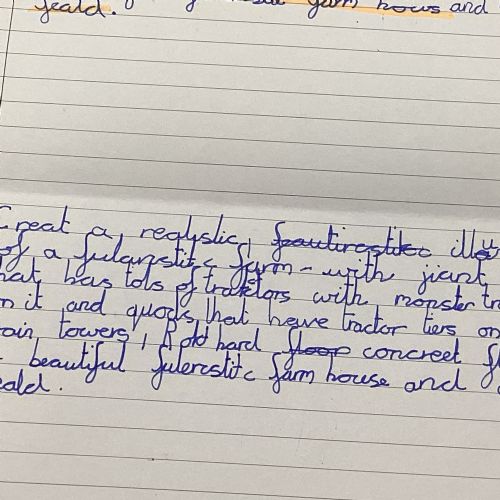 feald. farm hows and
Creat a realyslic, illu
of a fulerstitc farm - with jiant
hat has tols of traktors with monster tr
n it and quods that heve tractor tiers on
rain towers, R old hard floop concreet fl
beautiful fulerestitc farm house and
eald.